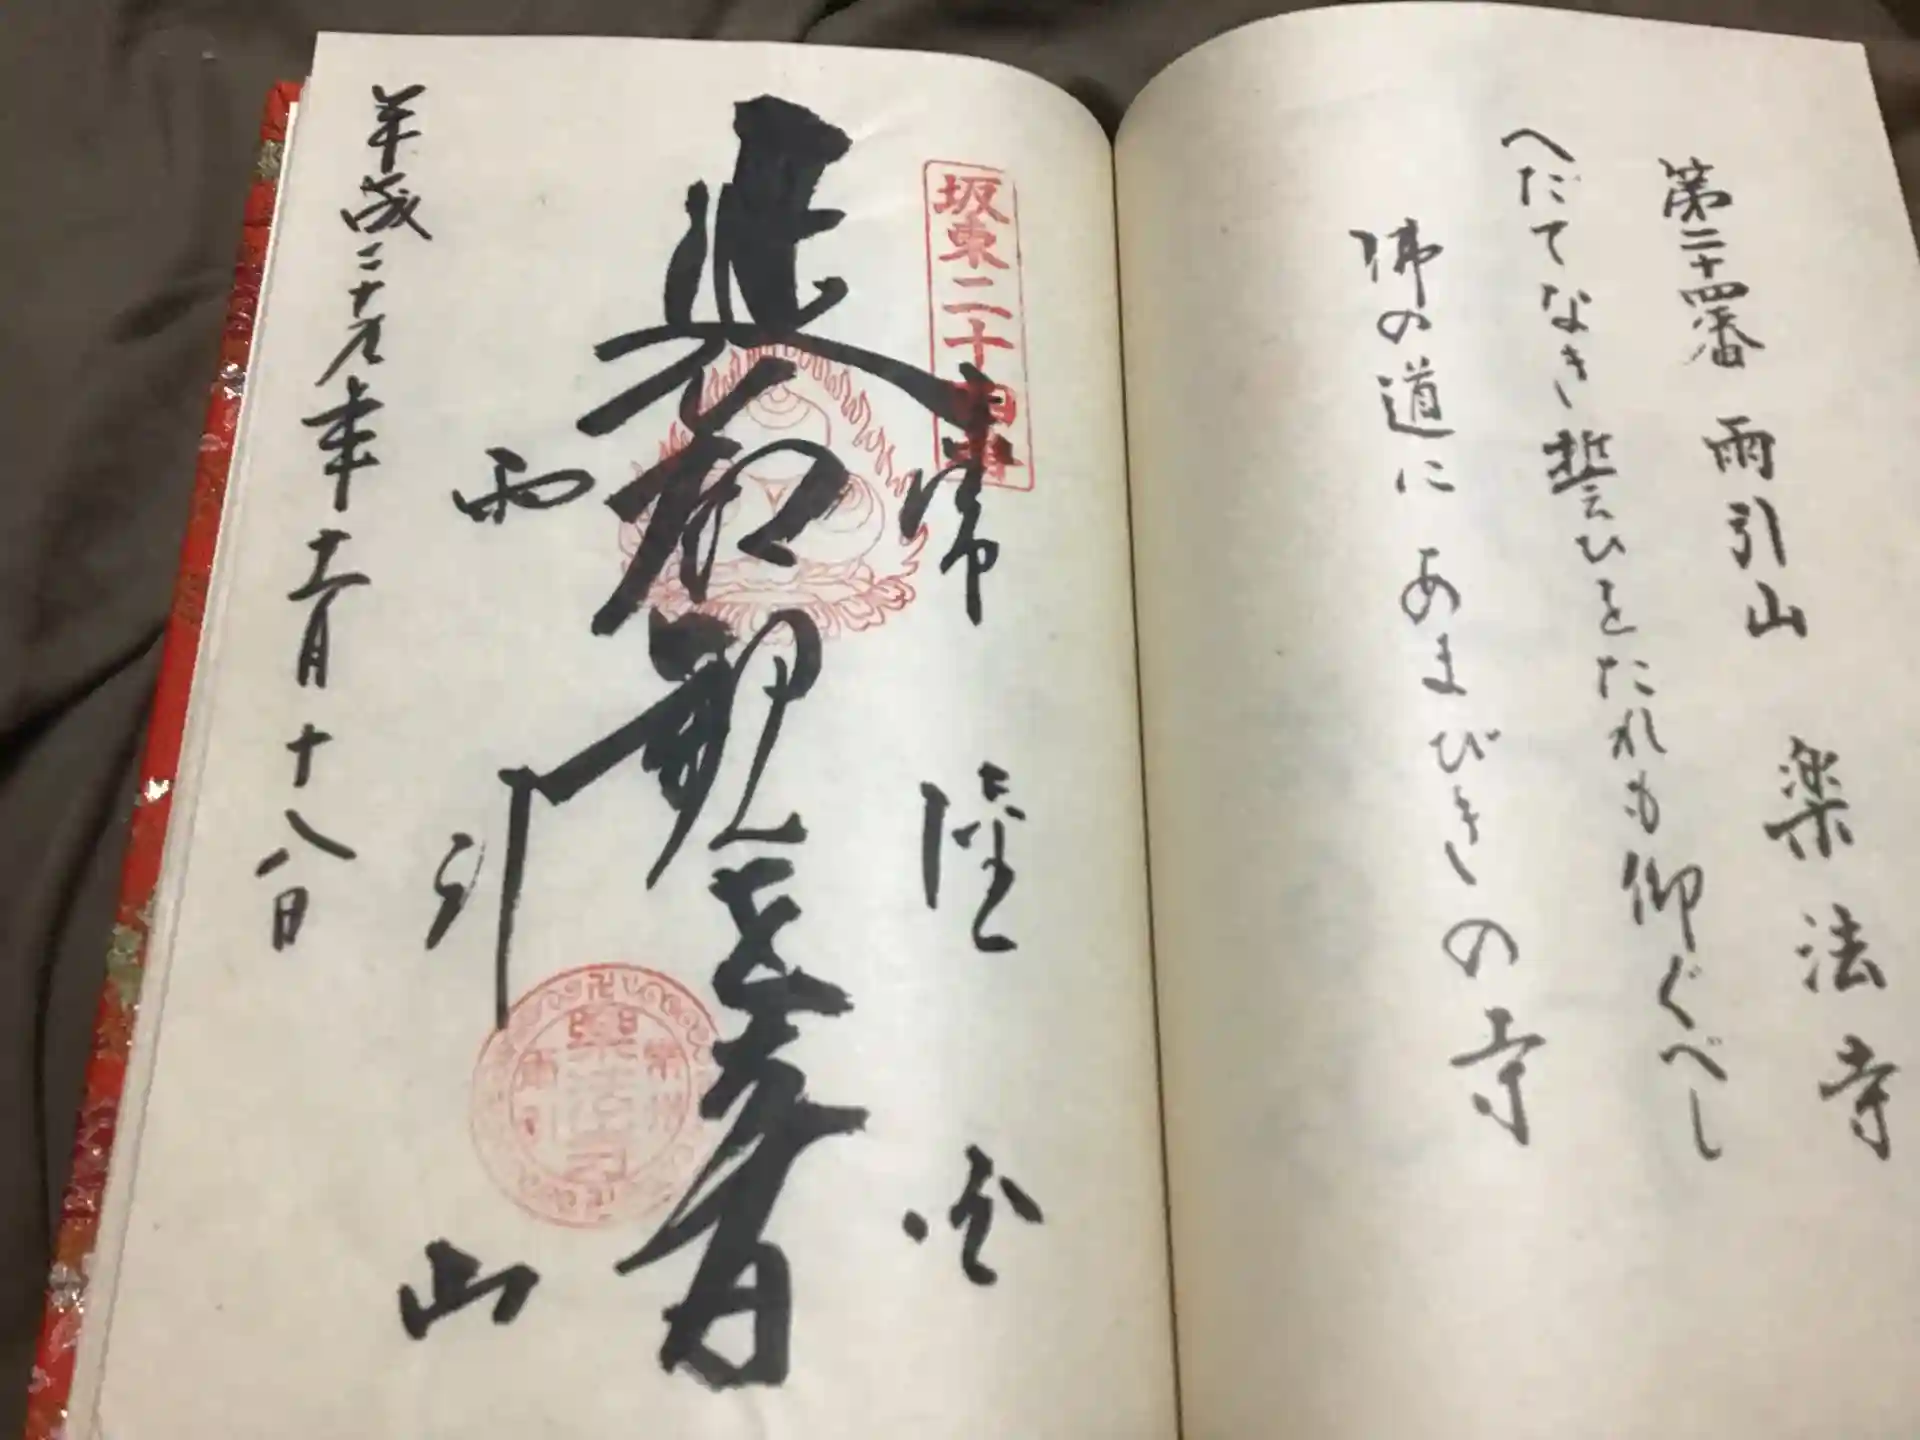 第二十四番 雨引山 楽法寺
へだてなき誓ひをたれも仰ぐべし
佛の道に あまびきの寺
坂東二十四番
常陸
延命観世音
雨引山
楽法寺
平成二十九年十二月十八日